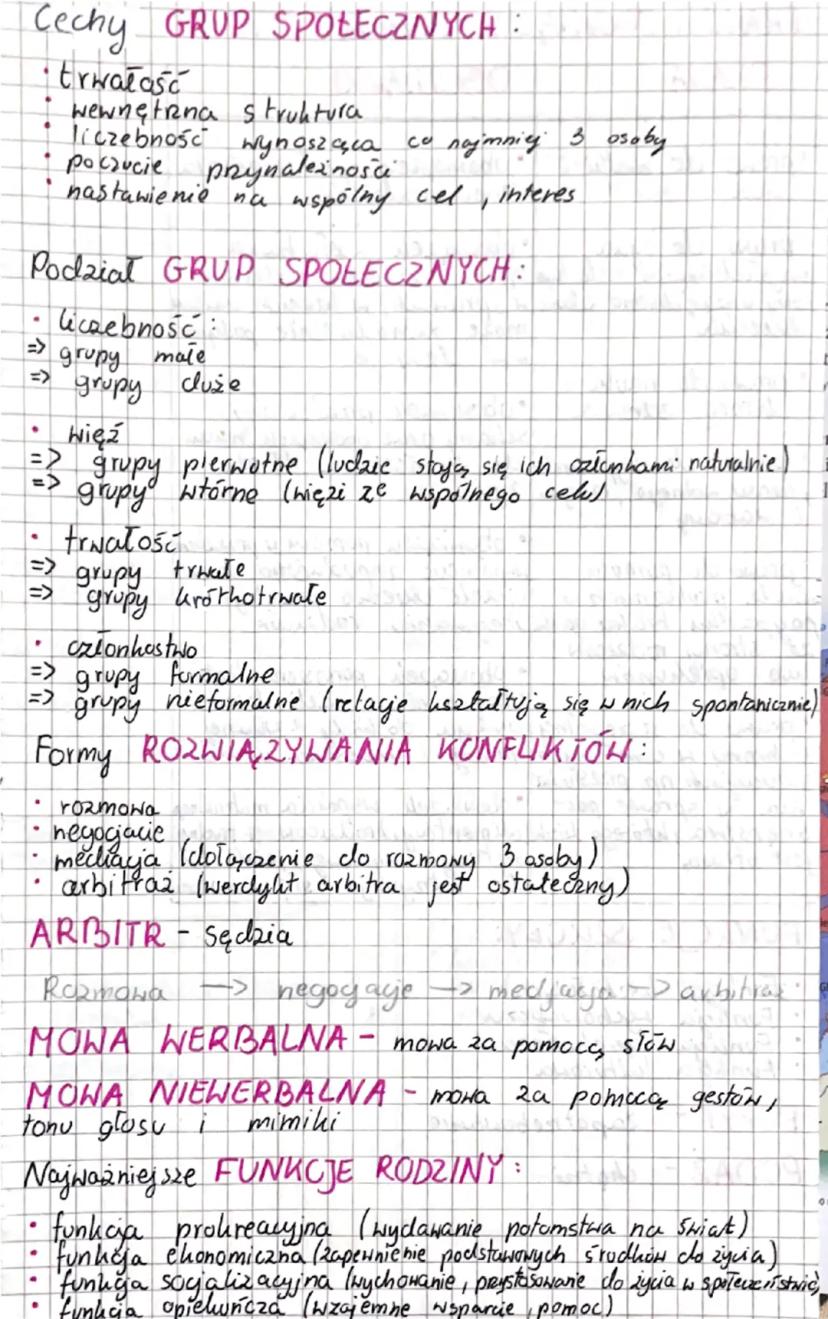 Cechy GRUP SPOŁECZNYCH:
• trwałość
• wewnętrzna struktura
• liczebność wynosząca co najmniej 3 osoby
• poczucie przynależności
• nastawienie na wspólny cel, interes
Podział GRUP SPOŁECZNYCH:
• liczebność:
=> grupy małe
=> grupy duże
• więź
=> grupy pierwotne (ludzie stają się ich członkami naturalnie)
=> grupy wtórne (więzi ze wspólnego celu)
• trwałość
=> grupy trwałe
=> grupy krótkotrwałe
• członkostwo
=> grupy formalne
=> grupy nieformalne (relacje kształtują się w nich spontanicznie)
Formy ROZWIĄZYWANIA KONFLIKTÓW:
• rozmowa
• negocjacje
• mediacja (dołączenie do rozmowy 3 osoby)
• arbitraż (werdykt arbitra jest ostateczny)
ARBITR - sędzia
Rozmowa —> negocjacje —> mediacja —> arbitraż
MOWA WERBALNA - mowa za pomocą słów
MOWA NIEWERBALNA - mowa za pomocą gestów,
tonu głosu i mimiki
Najważniejsze FUNKCJE RODZINY:
• funkcja prokreacyjna (wydawanie potomstwa na świat)
• funkcja ekonomiczna (zapewnienie podstawowych środków do życia)
• funkcja socjalizacyjna (wychowanie, przystosowanie do życia w społeczeństwie)
• funkcja opiekuńcza (wzajemne wsparcie, pomoc)